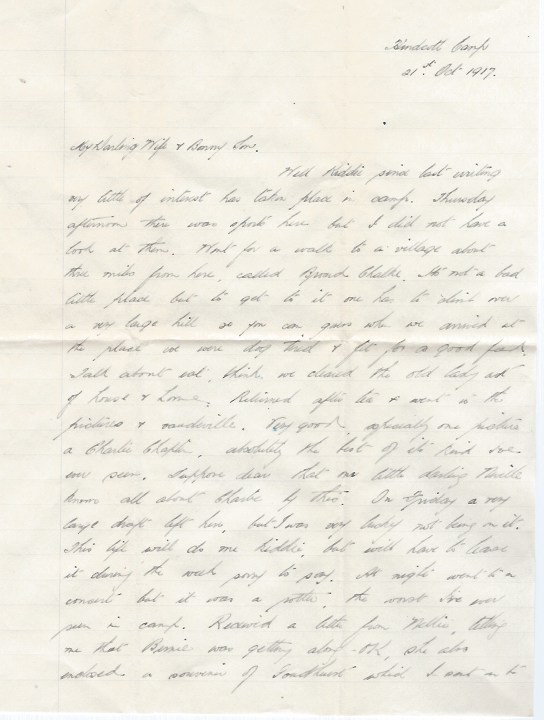 Camp
21st Oct 1917.
My Darling Wife & Bonny Sons.
Well Kiddie since last writing
very little of interest has taken place in camp. Thursday
afternoon there was sports here but I did not have a
look at them. Went for a walk to a village about
three miles from here, called Broad Chalke. Its not a bad
little place but to get to it one has to climb over
a very large hill so you can guess when we arrived at
the place we were dog tired & fit for a good feed.
Talk about eat, think we cleared the old lady out
of house & home. Returned after tea & went to the
pictures & vaudeville. Very good, especially one picture
a Charlie Chaplin, absolutely the best of its kind I've
ever seen. Suppose dear that our little darling
knows all about Charlie by this. On Friday a very
large draft left here, but I was very lucky not being on it.
This life will do me kiddie, but will have to leave
it during the week sorry to say. At night went to a
concert but it was a rotter, the worst I've ever
seen in camp. Received a letter from Nellie, telling
me that Bernie was getting along OK, she also
enclosed a souvenir of which I sent on to